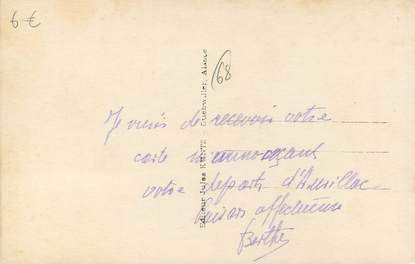 6 €
68
Editeur Jules KUNTZ - Guebwiller, Alsace
Je viens de recevoir votre
carte m'annonçant
votre départ d'Aurillac
Baisers affectueux
Berthe